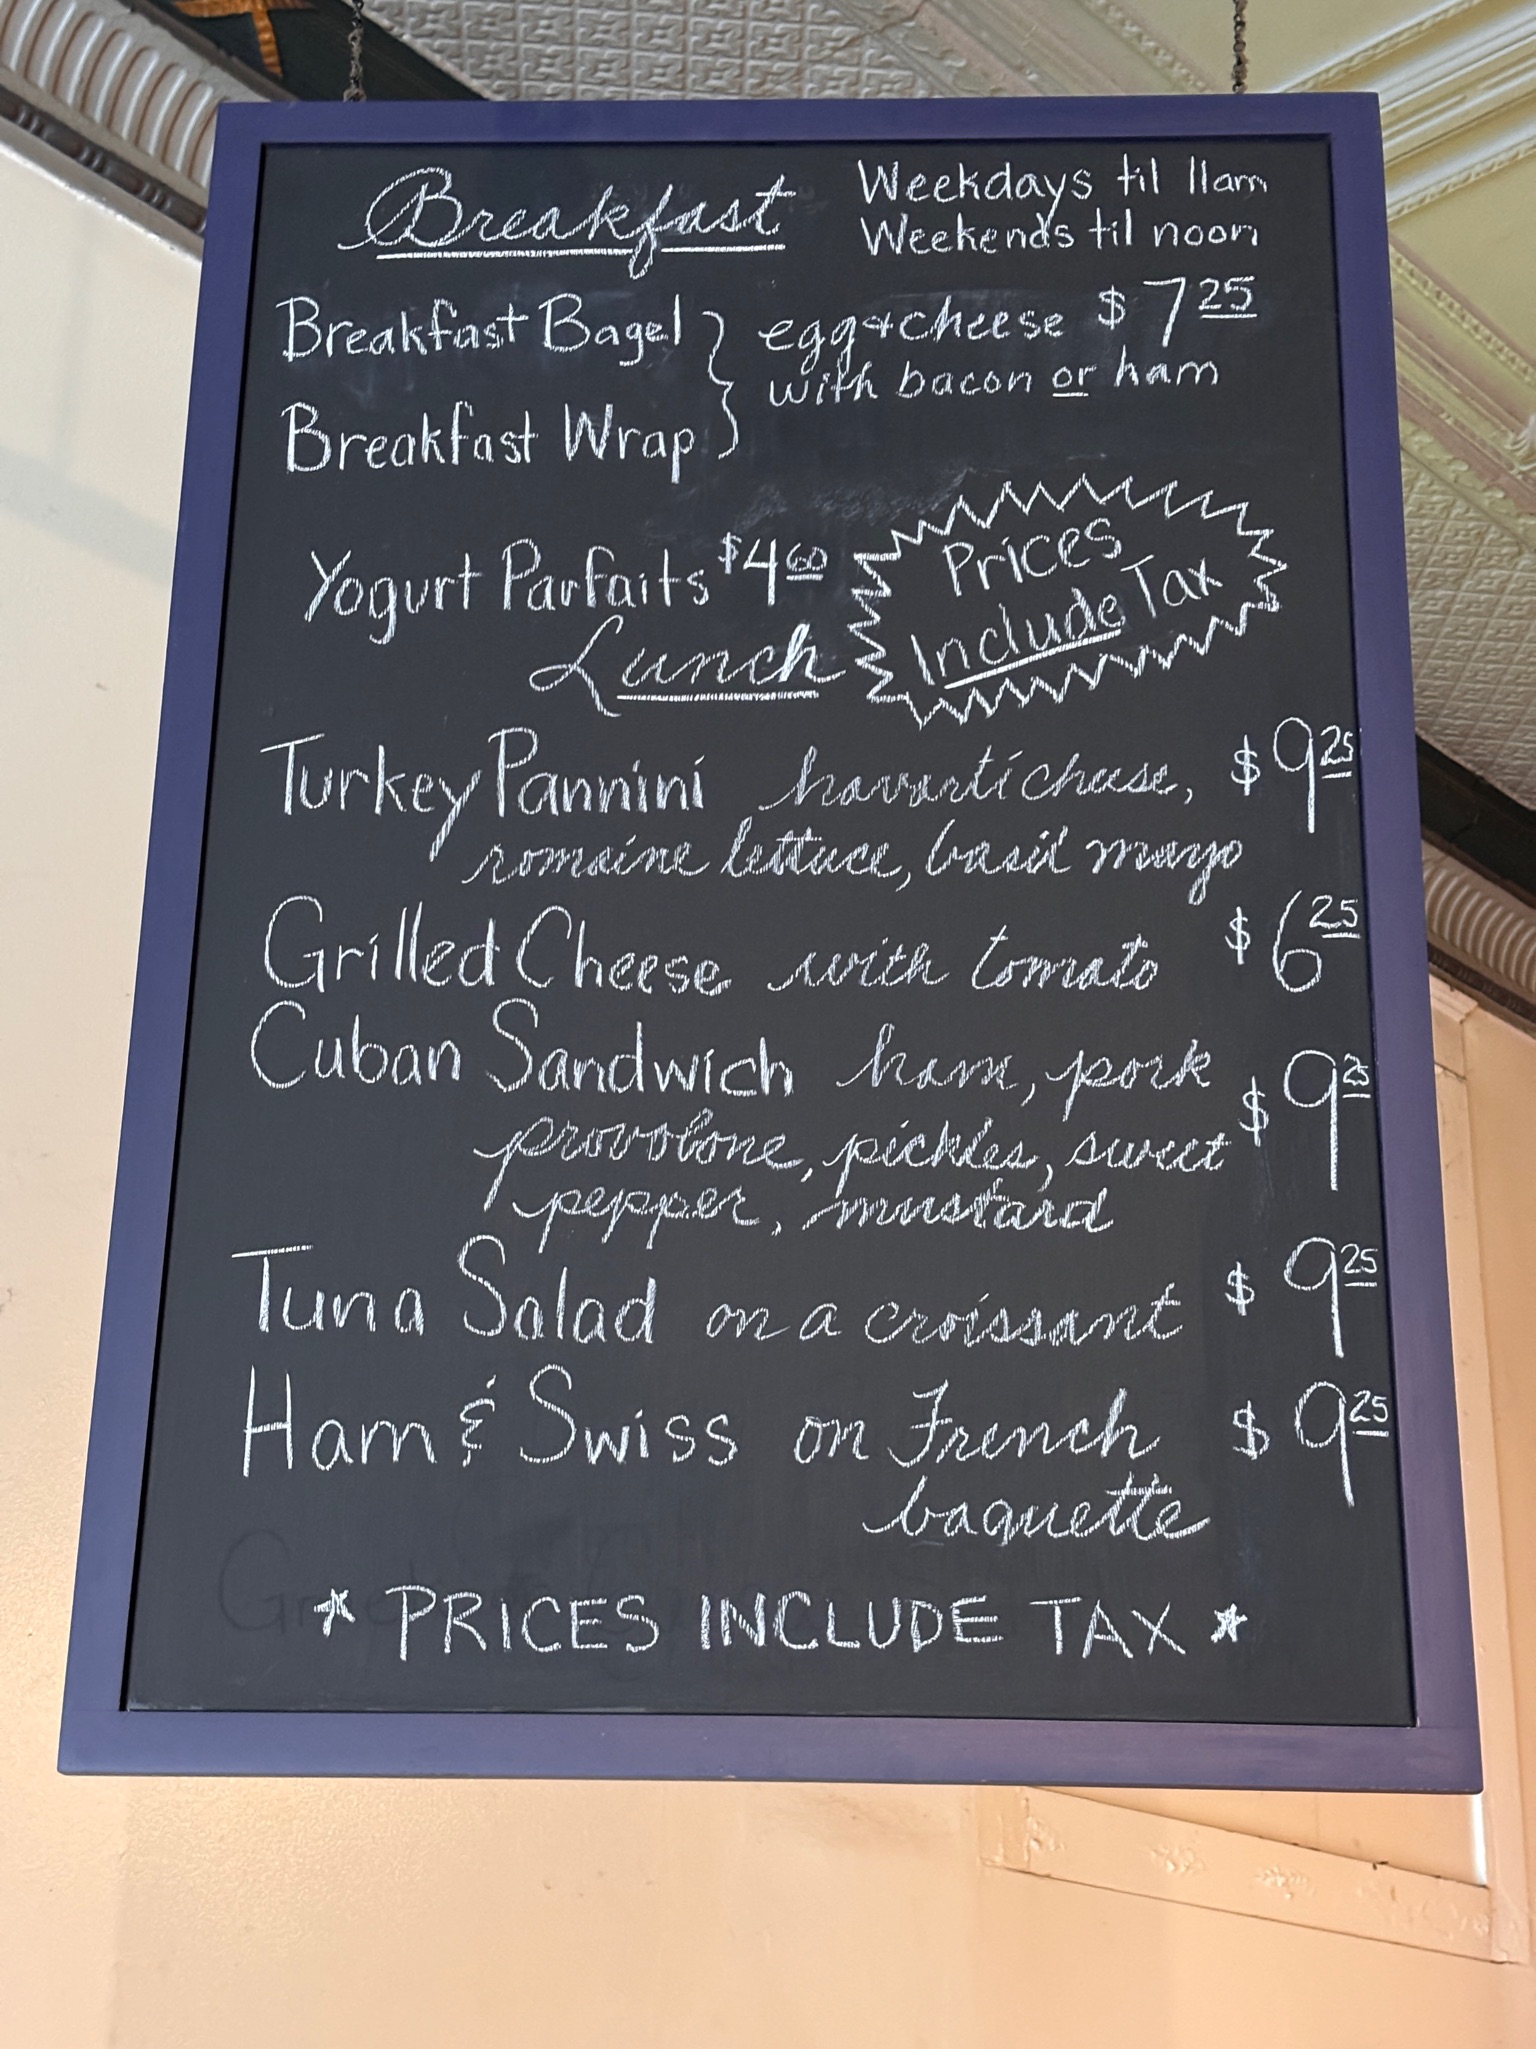 Breakfast
Weekdays til 11am
Weekends til noon
Breakfast Bagel } egg + cheese $7 25
with bacon or ham
Breakfast Wrap
Yogurt Parfaits $4 60
Prices
Include Tax
Lunch
Turkey Pannini havarti cheese, $9 25
romaine lettuce, basil mayo
Grilled Cheese with tomato $6 25
Cuban Sandwich ham, pork $9 25
provolone, pickles, sweet
pepper, mustard
Tuna Salad on a croissant $9 25
Ham & Swiss on French $9 25
baguette
* PRICES INCLUDE TAX *